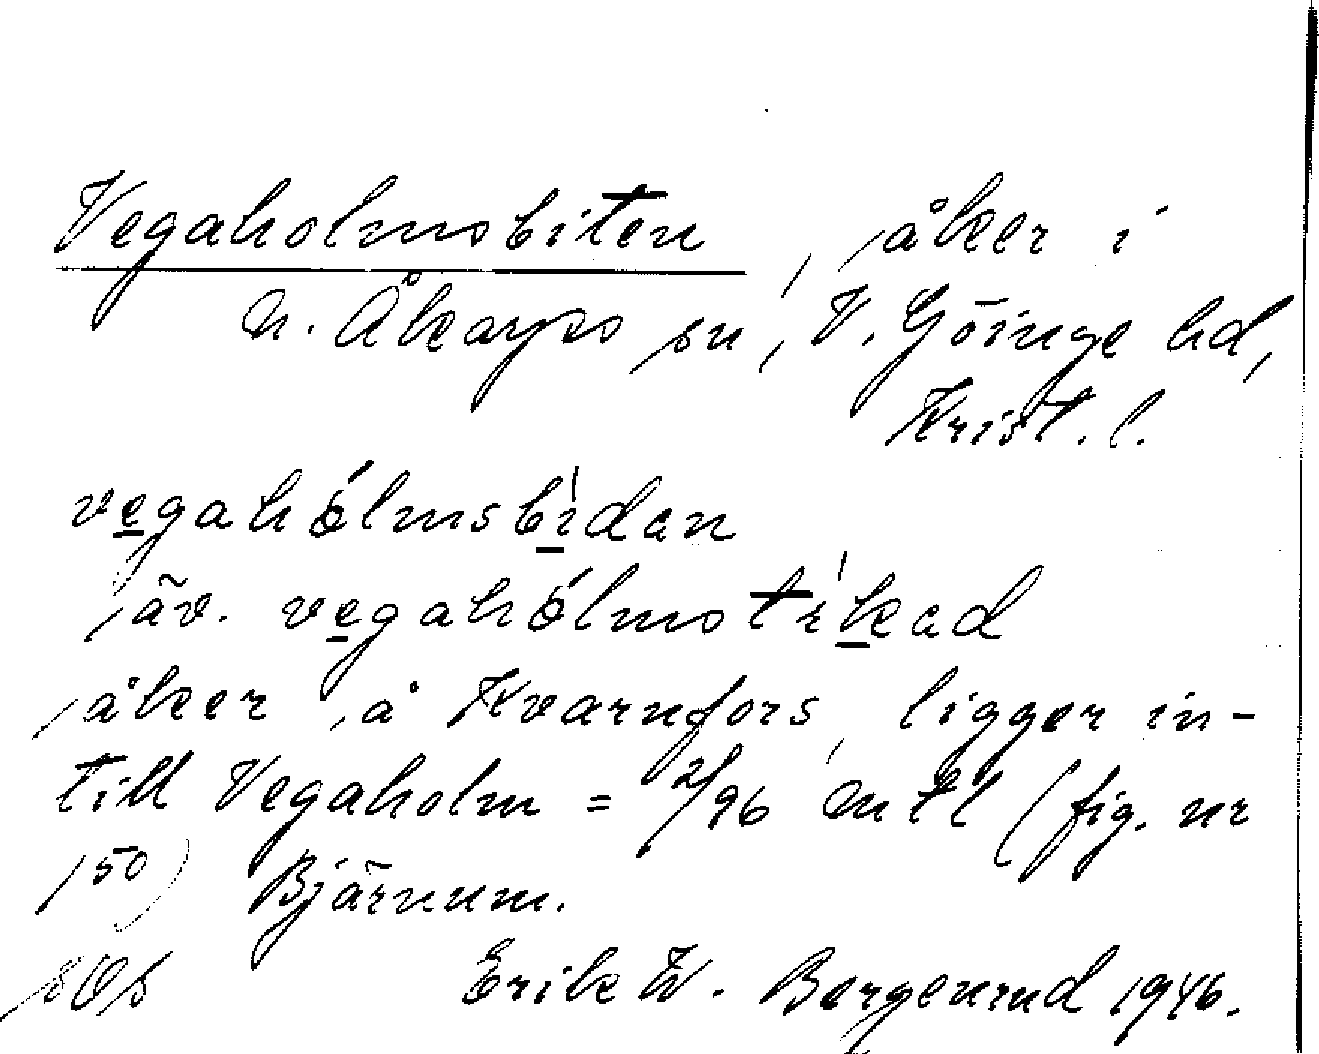 Vegaholmsbiten, åker i
N. Åkarps sn, V. Göinge hd,
Krist. l.
vegahólmsbìdan
äv. vegahólmstrìkad
åker å Kvarnfors, ligger in-
till Vegaholm = 2/96 mtl (fig. nr
150) Bjärnum.
Erik W. Bergenrud 1946.